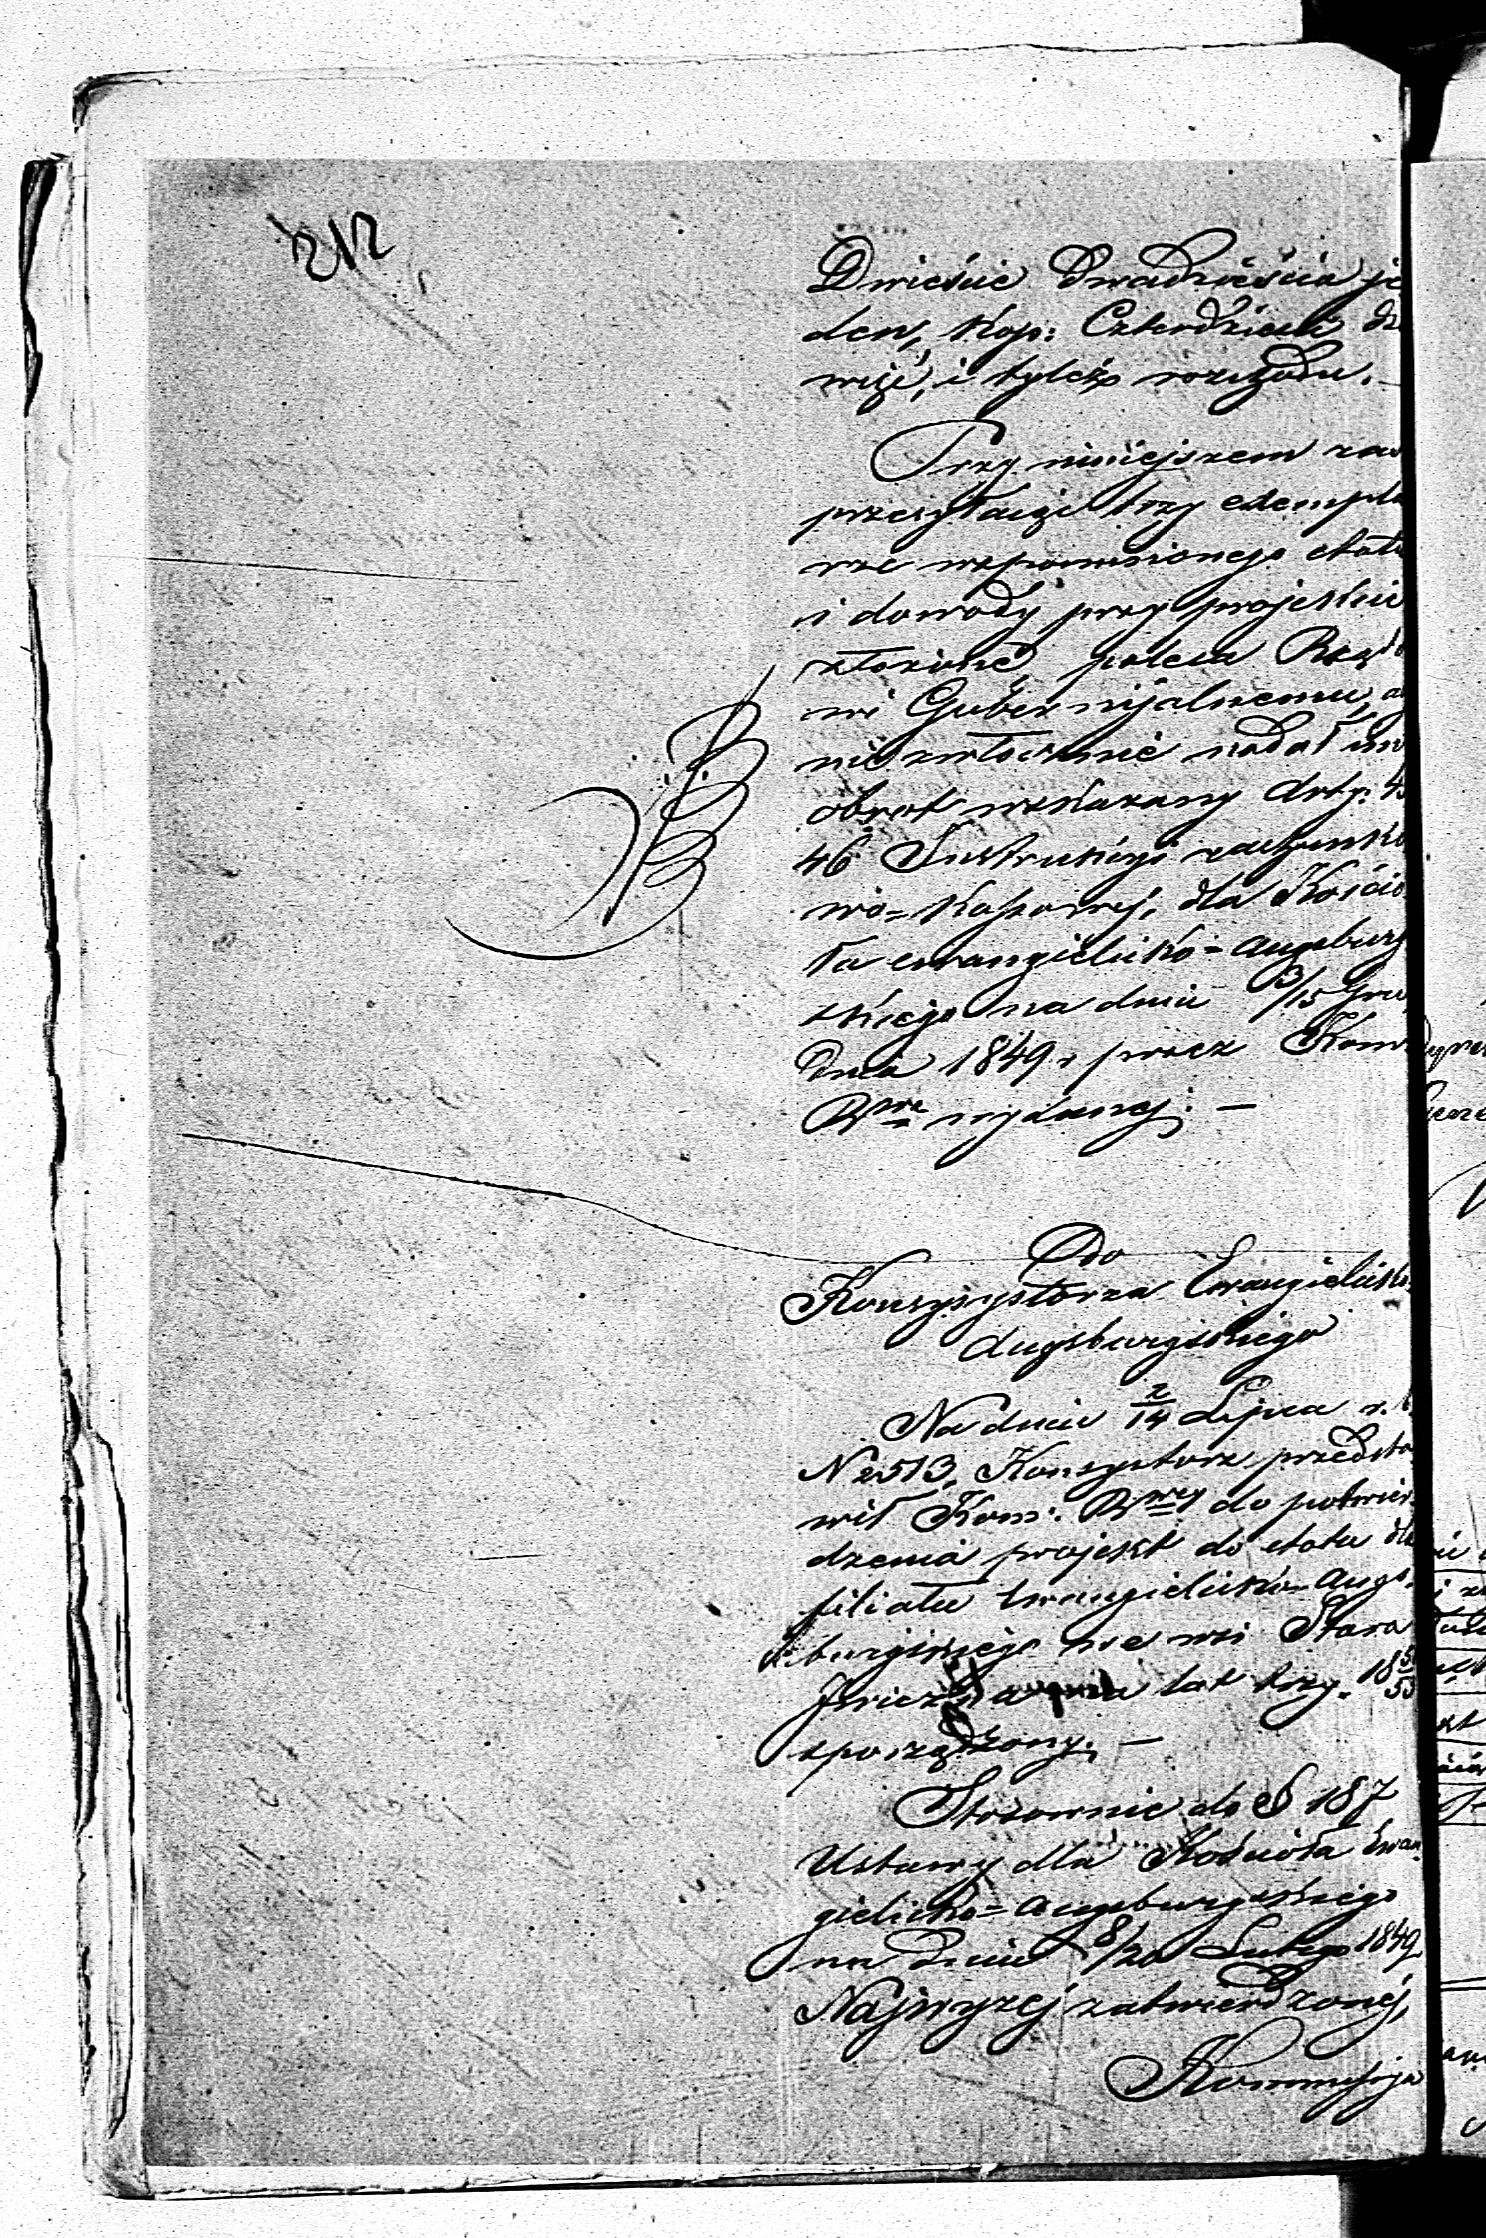 212
Dwieście dwadzieścia je
den, Kop: Czterdzieści dz
więć, i tyleż rozchodu. —
Przy niniejszem zaś
przesyłając trzy exempla
rze wspomnionego etatu
i dowody przy projekcie
złożone, poleca Rządo
wi Gubernijalnemu, a
niezwłocznie nadał im
obrot wskazany Arty: 45
46 Instrukcyi rachunko
wo=Kassowej, dla Kościo
ła ewangielicko=augsburg
skiego na dniu 3/15 Gru
dnia 1849 r przez Kom
Rwą wydanej. —
Do
Konsystorza Ewangielicko
Augsburgskiego
Na dniu 2/14 Lipca r. b.
N 2513, Konsystorz przedsta
wił Kom: Rwey do potwier
dzenia projekt do etatu dla
filiału Ewangielicko=Augs
burgskiego we wsi Stara
lat trzy 18
sporządzony. —
Stosownie do § 187
Ustawy dla Kościoła Ewan
gielicko=Augsburgskiego
na dniu 8/20 Lutego 1849
Najwyzej zatwierdzonej,
Kommissya